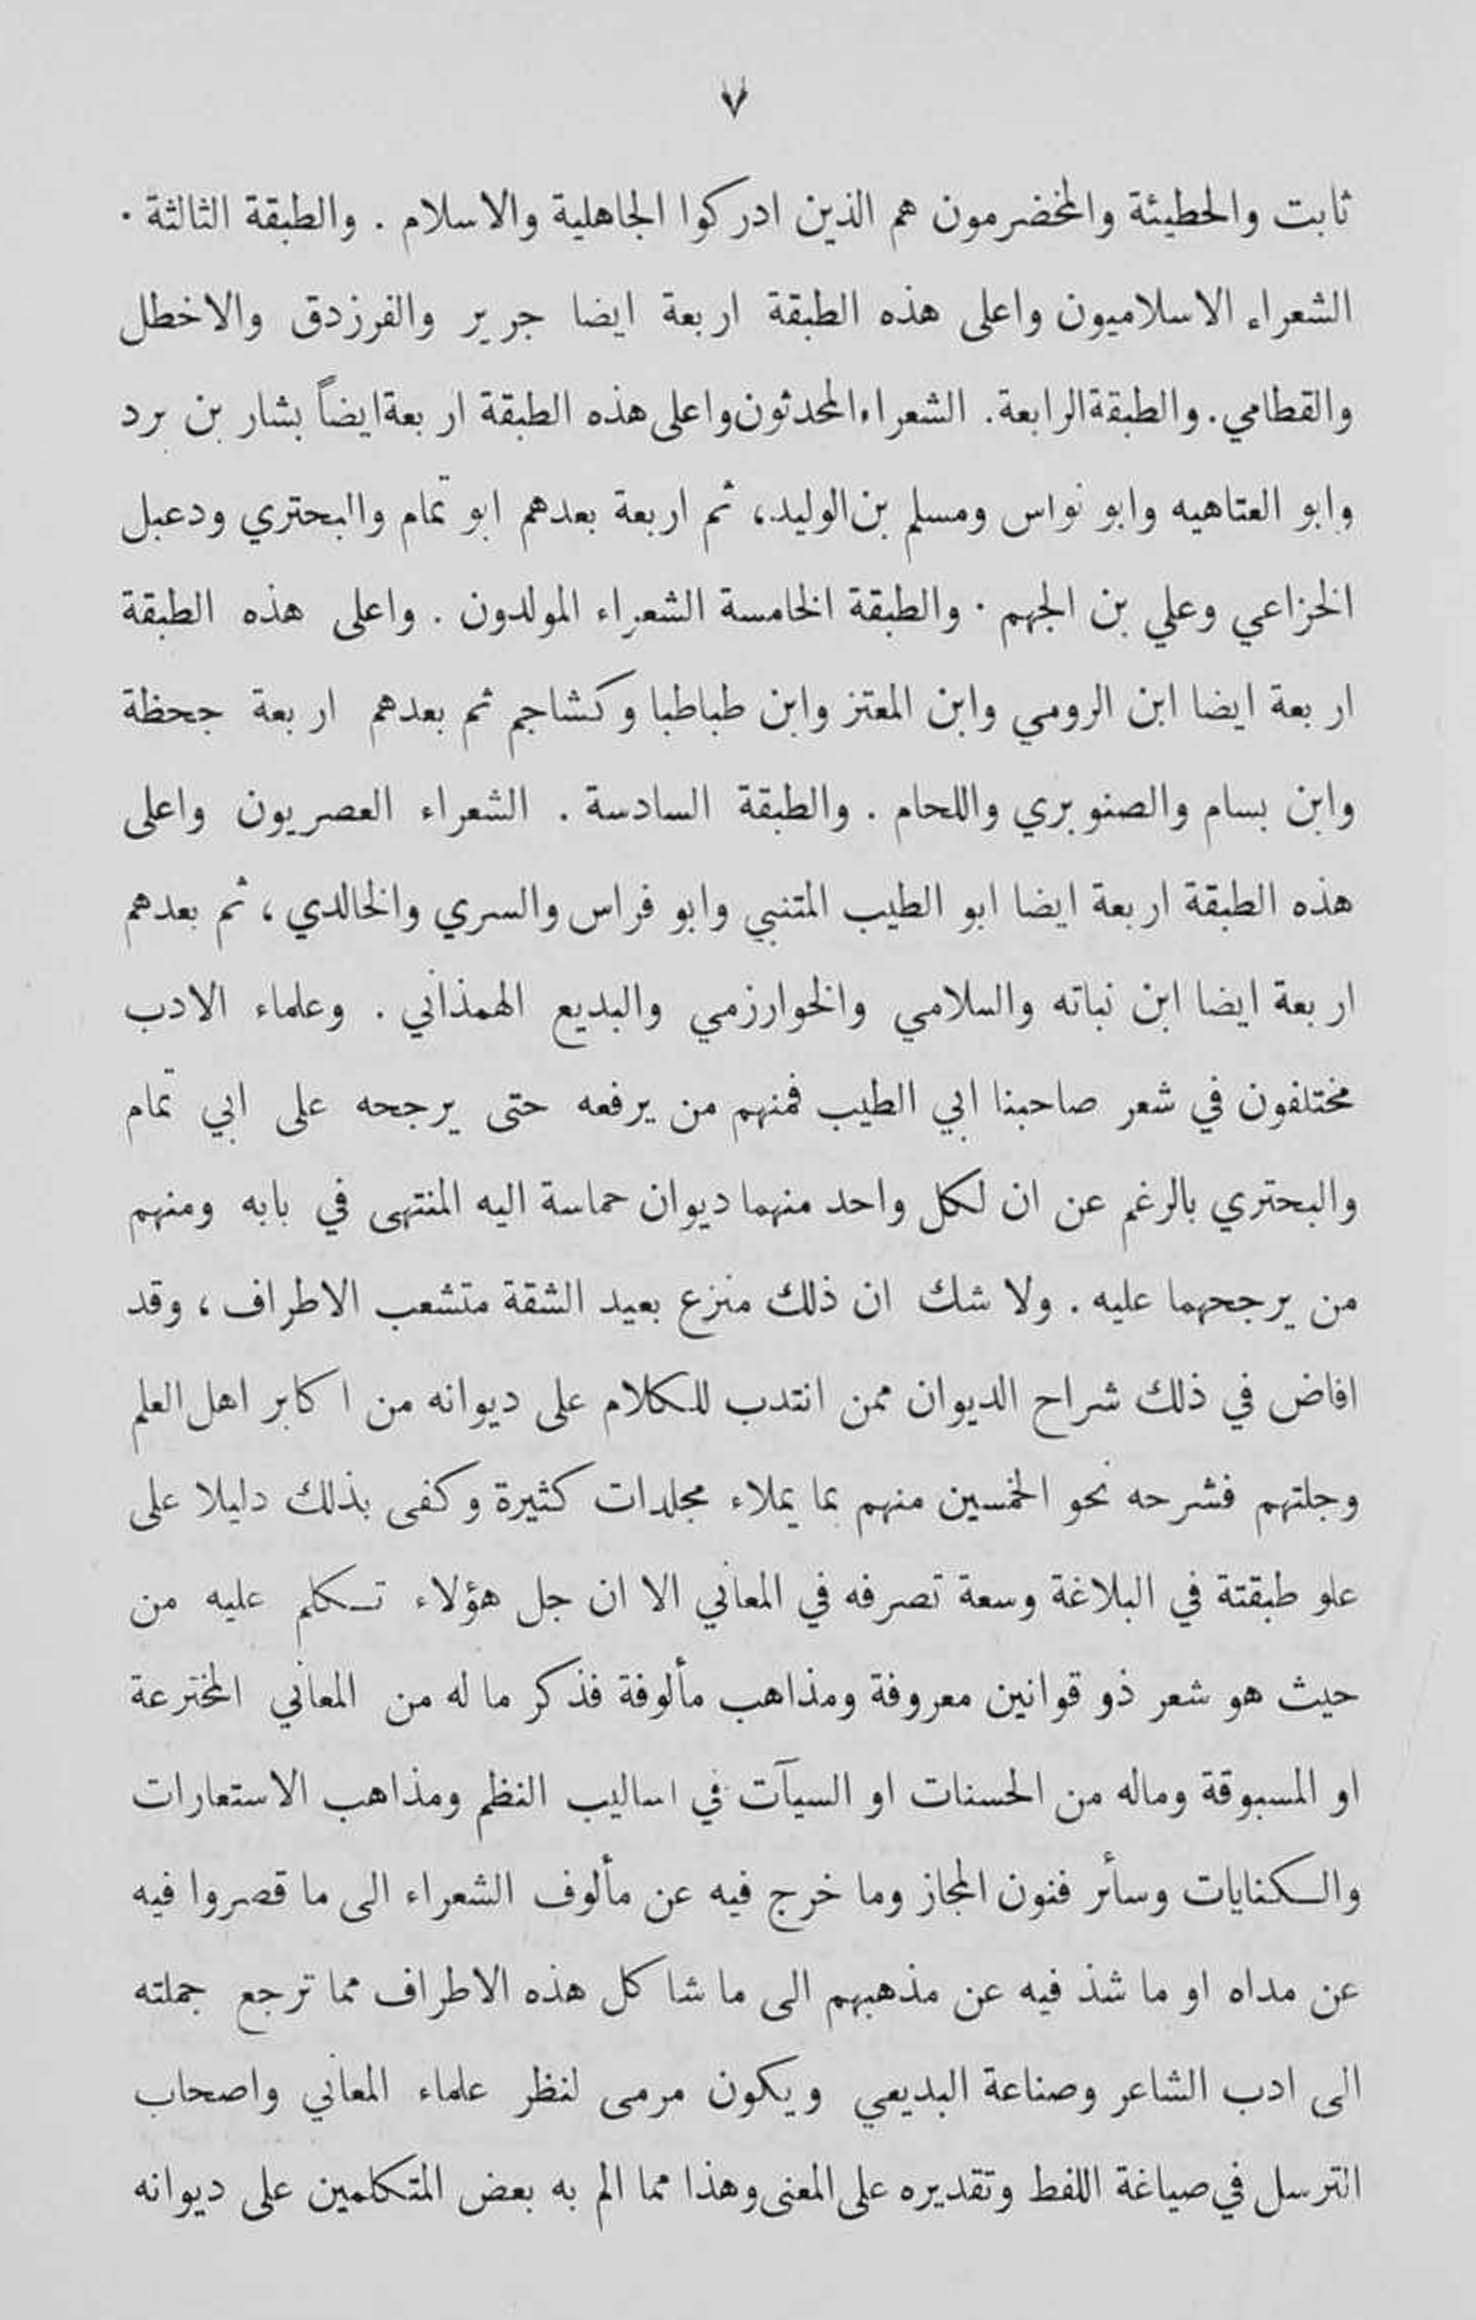 ٧
ثابت والحطيئة والمخضرمون هم الذين ادركوا الجاهلية والاسلام . والطبقة الثالثة .
الشعراء الاسلاميون واعلى هذه الطبقة اربعة ايضا جرير والفرزدق والاخطل
والقطامي . والطبقة الرابعة . الشعراء المحدثون واعلى هذه الطبقة اربعة ايضاً بشار بن برد
وابو العتاهيه وابو نواس ومسلم بن الوليد ، ثم اربعة بعدهم ابو تمام والبحتري ودعبل
الخزاعي وعلي بن الجهم . والطبقة الخامسة الشعراء المولدون . واعلى هذه الطبقة
اربعة ايضا ابن الرومي وابن المعتز وابن طباطبا وكشاجم ثم بعدهم اربعة جحظة
وابن بسام والصنوبري واللحام . والطبقة السادسة . الشعراء العصريون واعلى
هذه الطبقة اربعة ايضا ابو الطيب المتنبي وابو فراس والسري والخالدي ، ثم بعدهم
اربعة ايضا ابن نباته والسلامي والخوارزمي والبديع الهمذاني . وعلماء الادب
مختلفون في شعر صاحبنا ابي الطيب فمنهم من يرفعه حتى يرجحه على ابي تمام
والبحتري بالرغم عن ان لكل واحد منهما ديوان حماسة اليه المنتهى في بابه ومنهم
من يرجحهما عليه . ولا شك ان ذلك منزع بعيد الشقة متشعب الاطراف ، وقد
افاض في ذلك شراح الديوان ممن انتدب للكلام على ديوانه من اكابر اهل العلم
وجلتهم فشرحه نحو الخمسين منهم بما يملاء مجلدات كثيرة وكفى بذلك دليلا على
علو طبقتة في البلاغة وسعة تصرفه في المعاني الا ان جل هؤلاء تكلم عليه من
حيث هو شعر ذو قوانين معروفة ومذاهب مألوفة فذكر ما له من المعاني المخترعة
او المسبوقة وماله من الحسنات او السيآت في اساليب النظم ومذاهب الاستعارات
والكنايات وسأر فنون المجاز وما خرج فيه عن مألوف الشعراء الى ما قصروا فيه
عن مداه او ما شذ فيه عن مذهبهم الى ما شاكل هذه الاطراف مما ترجع جملته
الى ادب الشاعر وصناعة البديعي ويكون مرمى لنظر علماء المعاني واصحاب
الترسل في صياغة اللفط وتقديره على المعنى وهذا مما الم به بعض المتكلمين على ديوانه